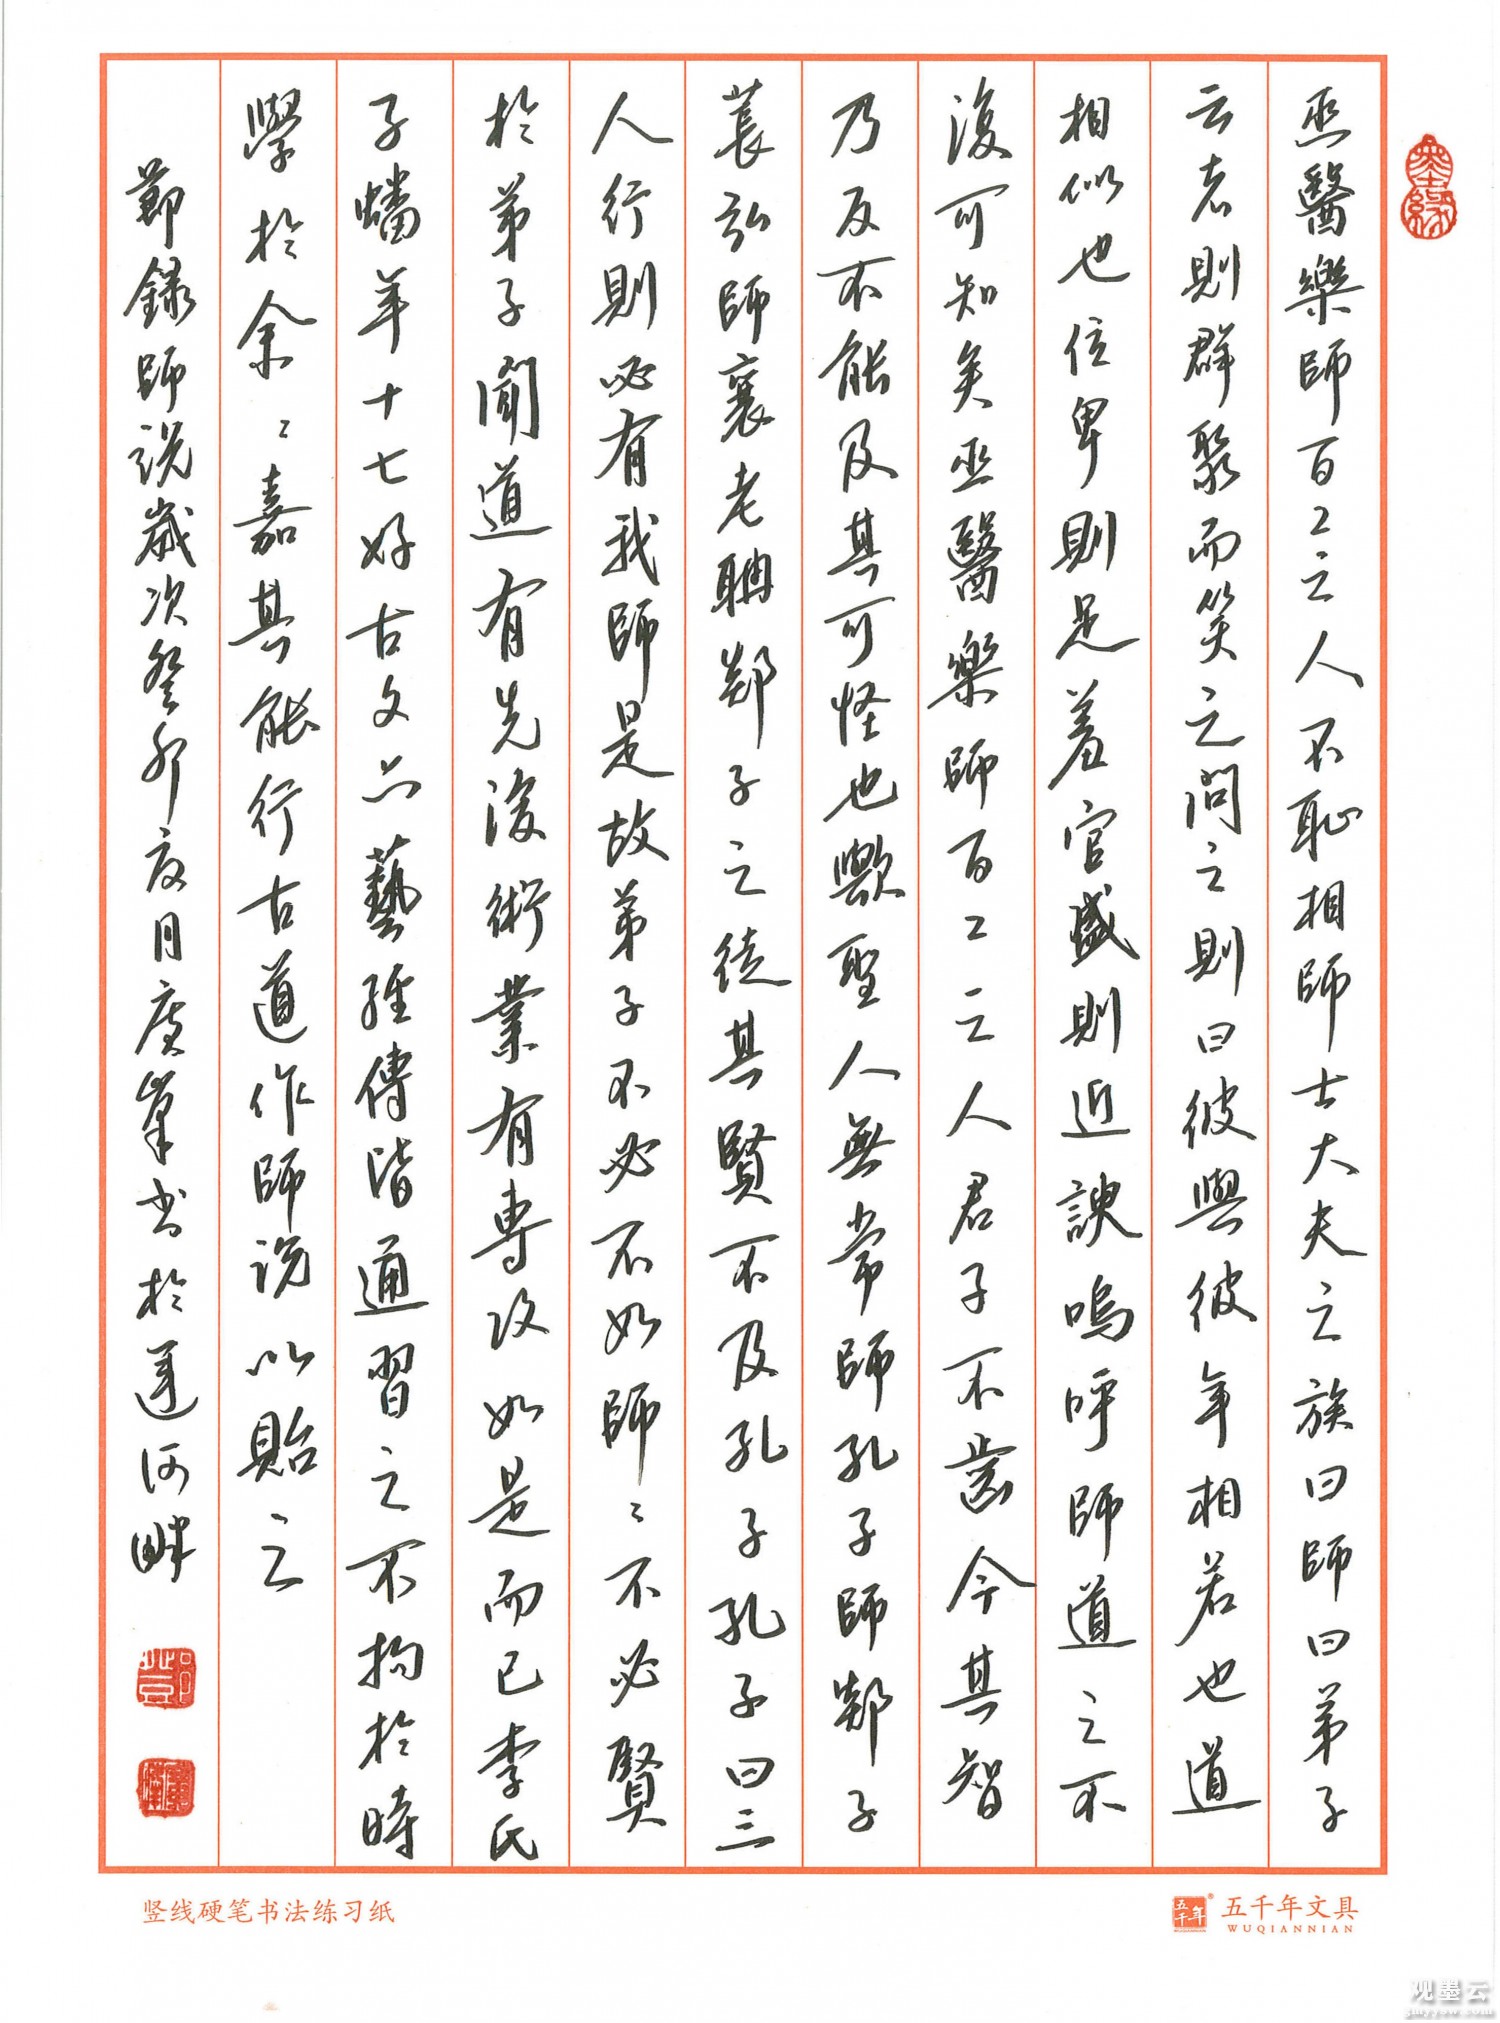 巫醫樂師百工之人不恥相師士大夫之族曰師曰弟子
云者則群聚而笑之問之則曰彼與彼年相若也道
相似也位卑則足羞官盛則近諛嗚呼師道之不
復可知矣巫醫樂師百工之人君子不齒今其智
乃反不能及其可怪也歟聖人無常師孔子師郯子
萇弘師襄老聃郯子之徒其賢不及孔子孔子曰三
人行則必有我師是故弟子不必不如師〻不必賢
於弟子聞道有先後術業有專攻如是而已李氏
子蟠年十七好古文六藝經傳皆通習之不拘於時
學於余〻嘉其能行古道作師説以貽之
節錄師説歲次癸卯夏月書於運河畔
墨緣
竖线硬笔书法练习纸
五千年
五千年文具
WUQIANNIAN
观墨云
gmyyow.com